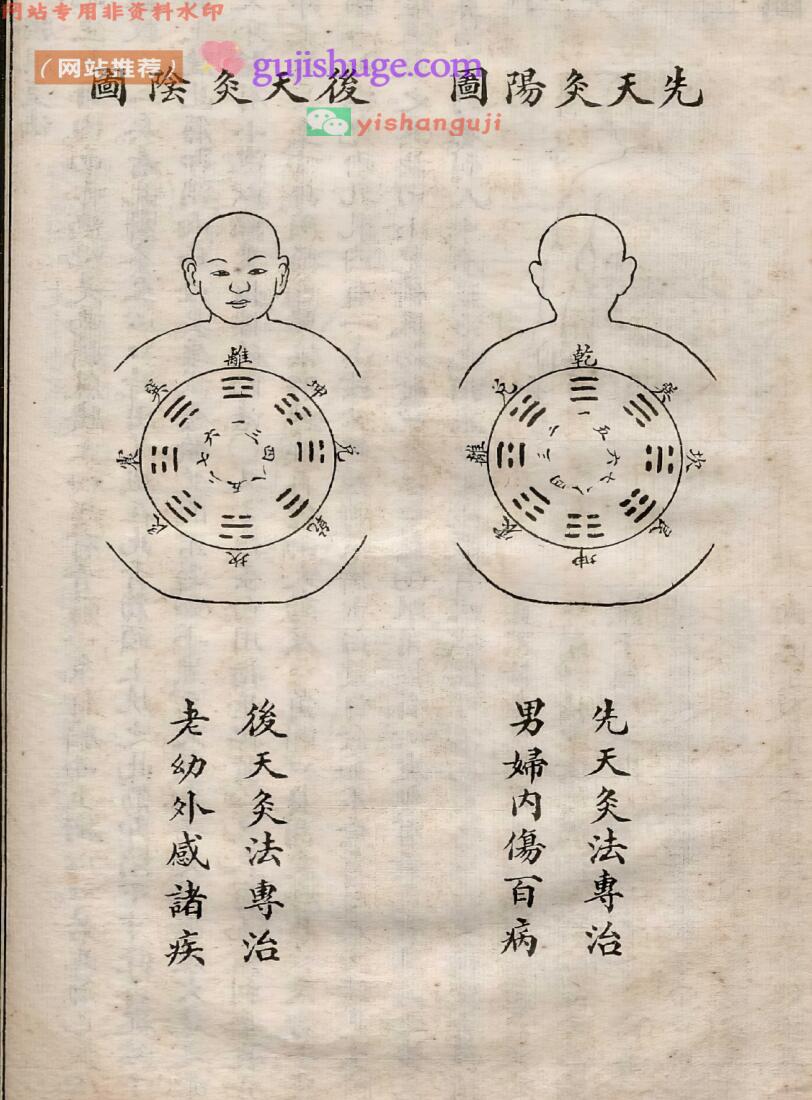 网站专用非资料水印
(网站推荐)
gujishuge.com
yishanguji
先天灸陽圖
後天灸陰圖
乾
兌
巽
離
坎
震
艮
坤
一
二
五
三
六
四
八
七
離
巽
坤
震
兌
艮
乾
坎
一
六
三
七
四
八
五
先天灸法專治
男婦内傷百病
後天灸法專治
老幼外感諸疾